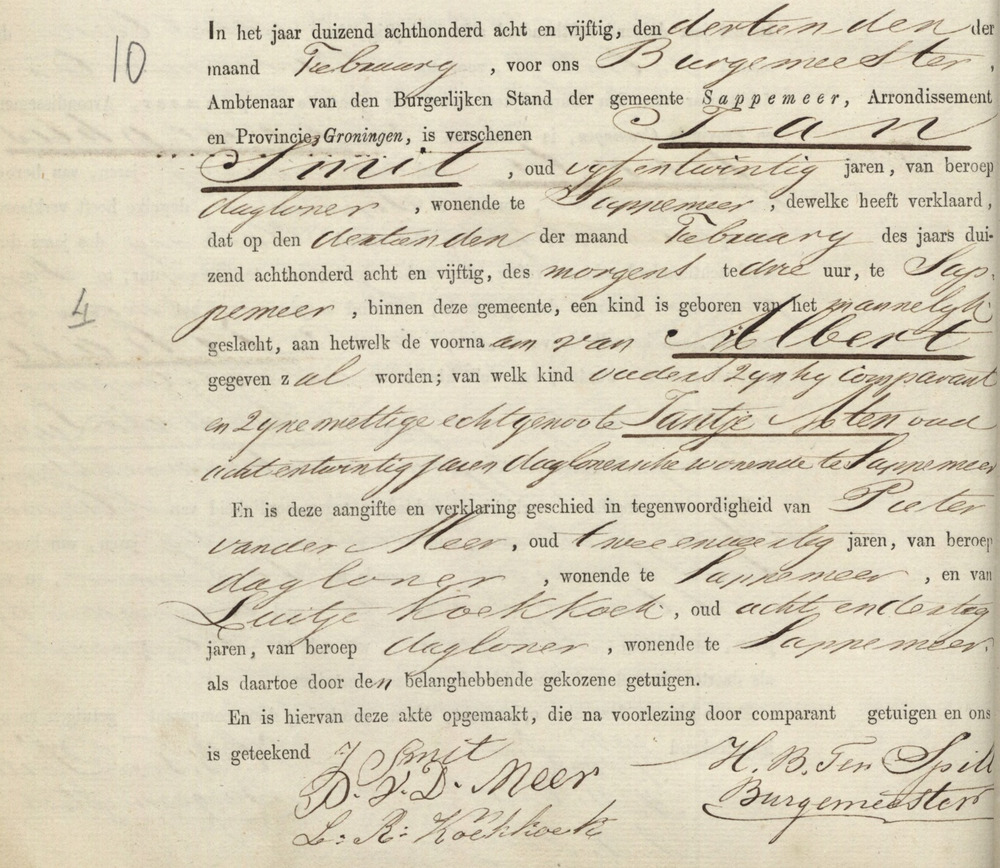 10
In het jaar duizend achthonderd acht en vijftig, den dertienden der
maand February, voor ons Burgemeester,
Ambtenaar van den Burgerlijken Stand der gemeente Sappemeer, Arrondissement
en Provincie Groningen, is verschenen Jan
Smit, oud vyfentwintig jaren, van beroep
dagloner, wonende te Sappemeer, dewelke heeft verklaard,
dat op den dertienden der maand February des jaars dui-
zend achthonderd acht en vijftig, des morgens te drie uur, te Sap-
4
pemeer, binnen deze gemeente, een kind is geboren van het mannelyk
geslacht, aan hetwelk de voornaam van Albert
gegeven zal worden; van welk kind ouders zyn hy comparant
en zyne wettige echtgenoote Jantje Aten oud
achtentwintig jaren daglonersche wonende te Sappemeer
En is deze aangifte en verklaring geschied in tegenwoordigheid van Pieter
van der Meer, oud jaren, van beroep
dagloner, wonende te Sappemeer, en van
Luitje Koekkoek, oud acht en dertig
jaren, van beroep dagloner, wonende te Sappemeer.
als daartoe door den belanghebbende gekozene getuigen.
En is hiervan deze akte opgemaakt, die na voorlezing door comparant getuigen en ons
is geteekend J Smit
H. B. Ten Spill
P. V. D. Meer
Burgemeester
L: R: Koekkoek